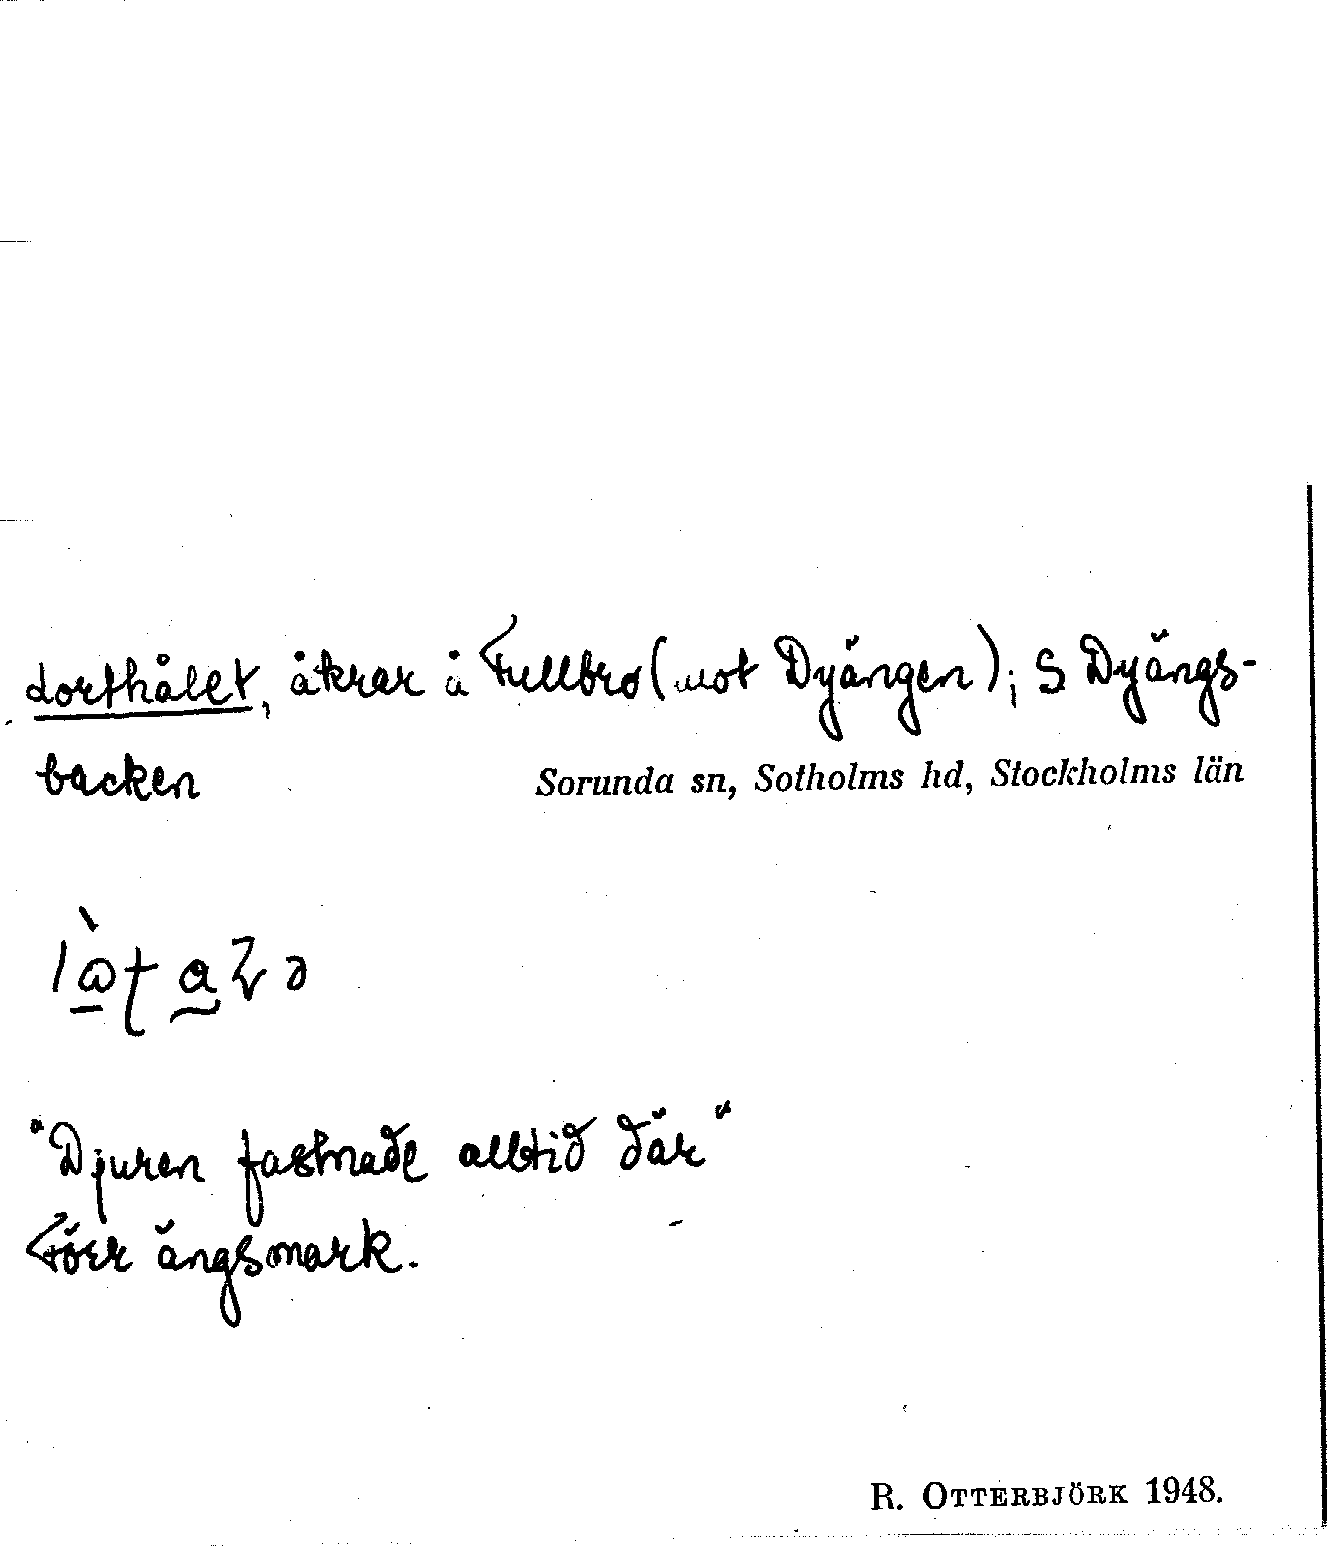 dorthålet, åkrar å Fullbro (mot Dyängen); S Dyängs-
backen
Sorunda sn, Sotholms hd, Stockholms län
"Djuren fastnade alltid där"
Förr ängsmark.
R. OTTERBJÖRK 1948.